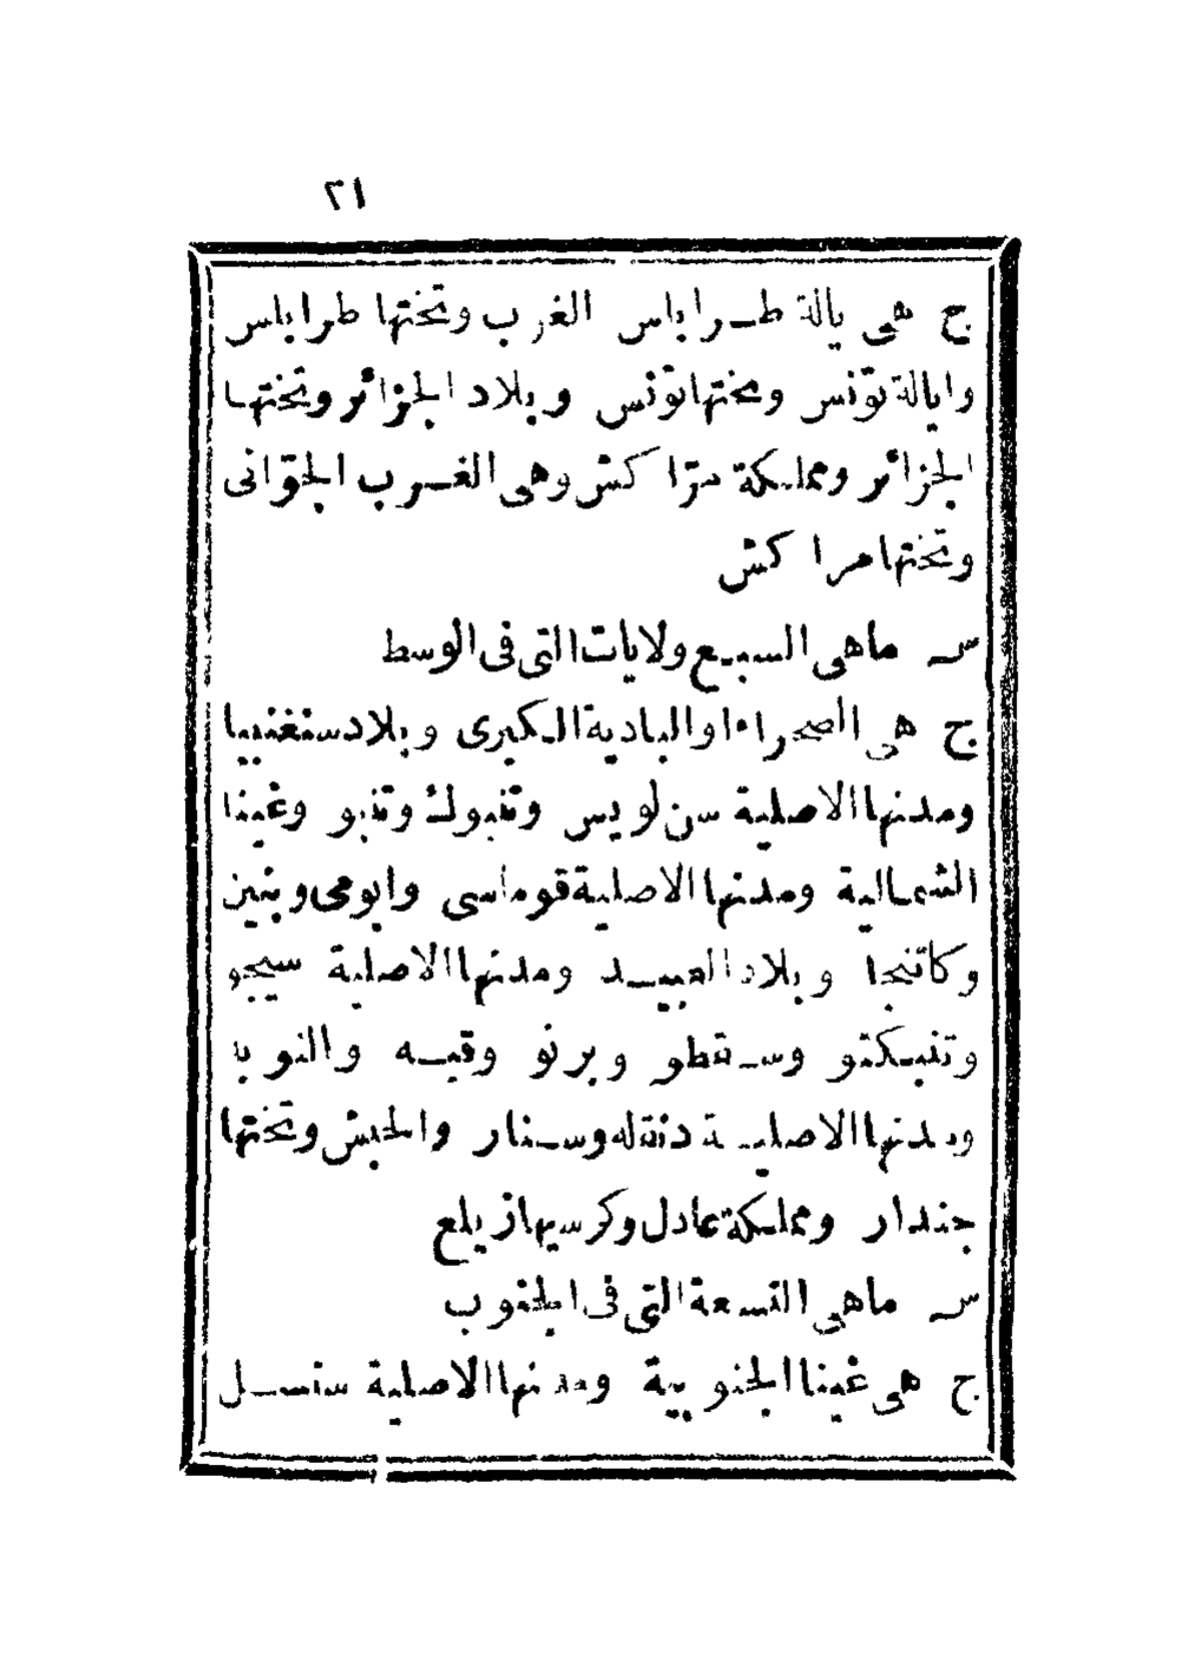 ٢١
ج هى يالة طرابلس الغرب وتختها طرابلس
وايالة تونس وتختها تونس وبلاد الجزائر وتختها
الجزائر ومملكة مرّاكش وهى الغرب الجوّانى
وتختها مراكش
س ماهى السبع ولايات التى فى الوسط
ج هى الصحراء او البادية الكبرى وبلاد سنغنبيا
ومدنها الاصلية سن لويس وتنبوك وتنبو وغينا
الشمالية ومدنها الاصلية قوماسى وابومى وبنين
وكاتنجا وبلاد العبيد ومدنها الاصلية سيجو
وتنبكتو وسقطو وبرنو وقبه والنوبه
ومدنها الاصلية دنقله وسنار والحبش وتختها
جندار ومملكة عادل وكرسيها زيلع
س ماهى التسعة التى فى الجنوب
ج هى غينا الجنوبية ومدنها الاصلية سنسل